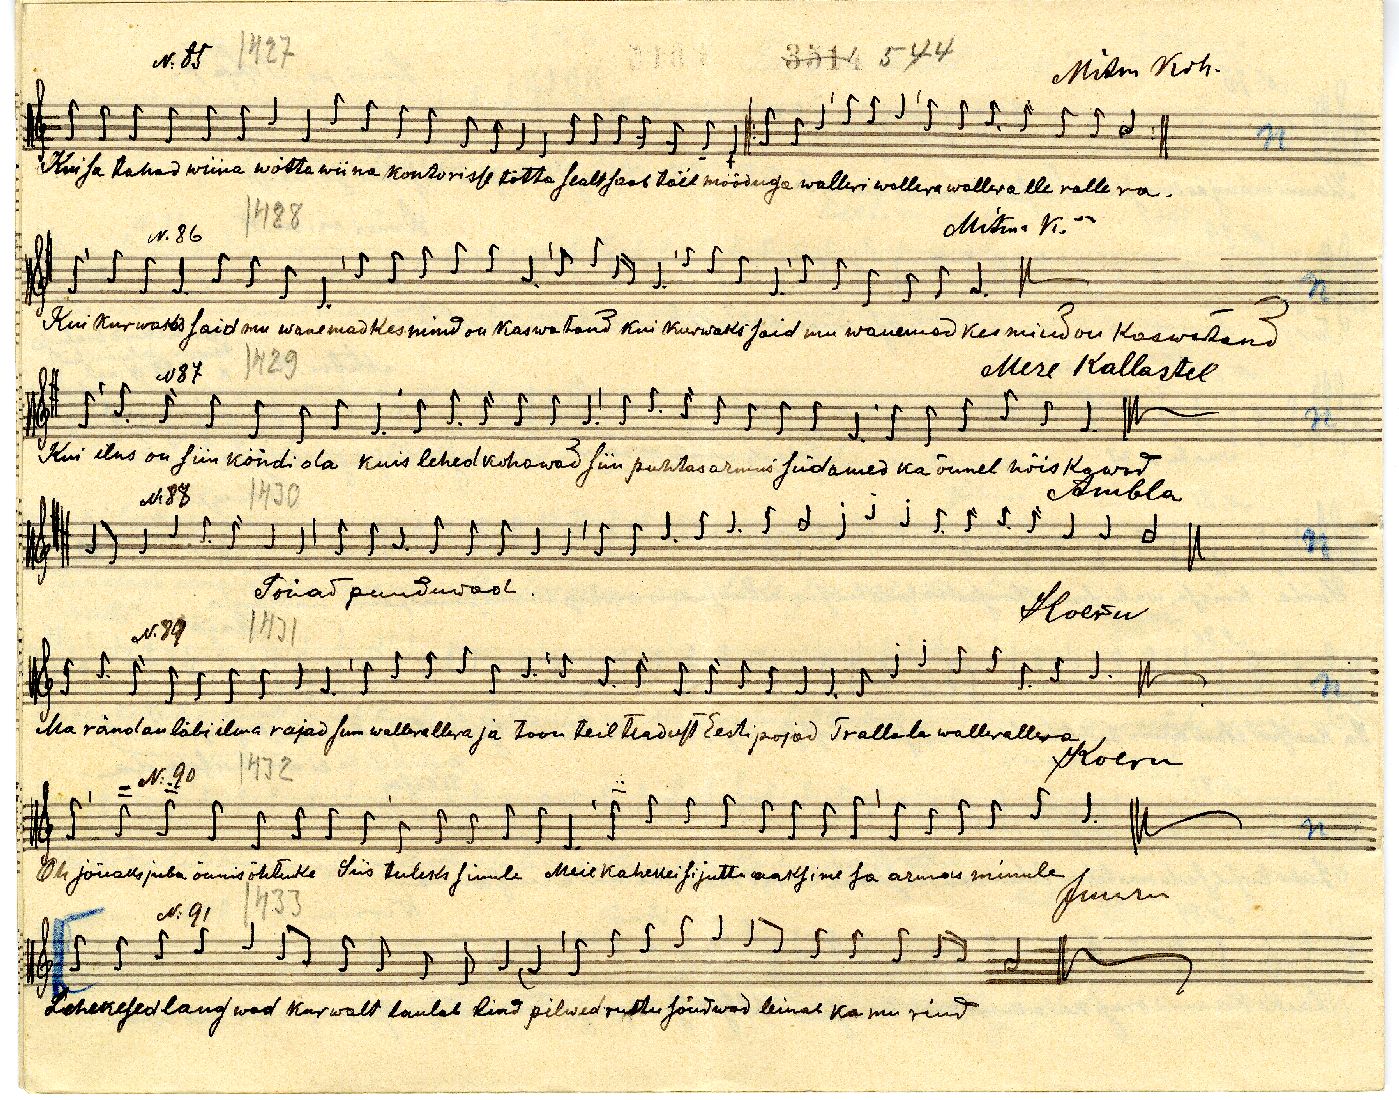 N. 85 1427 3514 544
Mitm Koh.
Kui sa tahad wiina wõtta wiina kontorisse tõtta sealt saab täie mõõduga walleri wallera wallera lle ralle ra.
N. 86 1428
Mitma K.
Kui kurwaks said mu wanemad kes mind on kaswatand kui kurwaks said mu wanemad kes mind on kaswatand
N 87 1429
Mere Kallastel
Kui ilus on siin kõndida kuis lehed kohawad siin puhtas armus südamed ka õnnel
N 88 1430
Ambla
Tõiad punduwad.
N. 89 1431
Koeru
Ma rändan läbi ilma rajad sum wallerallera ja toon teil teadust Eesti pojad Trallala wallerallera
N. 90 1432
Koeru
Oh jõuaks juba õnnis õhtuke Siis tuleks sinule Meie kahekesi juttu aaksime sa armas minule
N. 91 1433
Lehekesed langwad kurwalt laulab lind pilwed ruttu sõudwad leinab ka mu rind